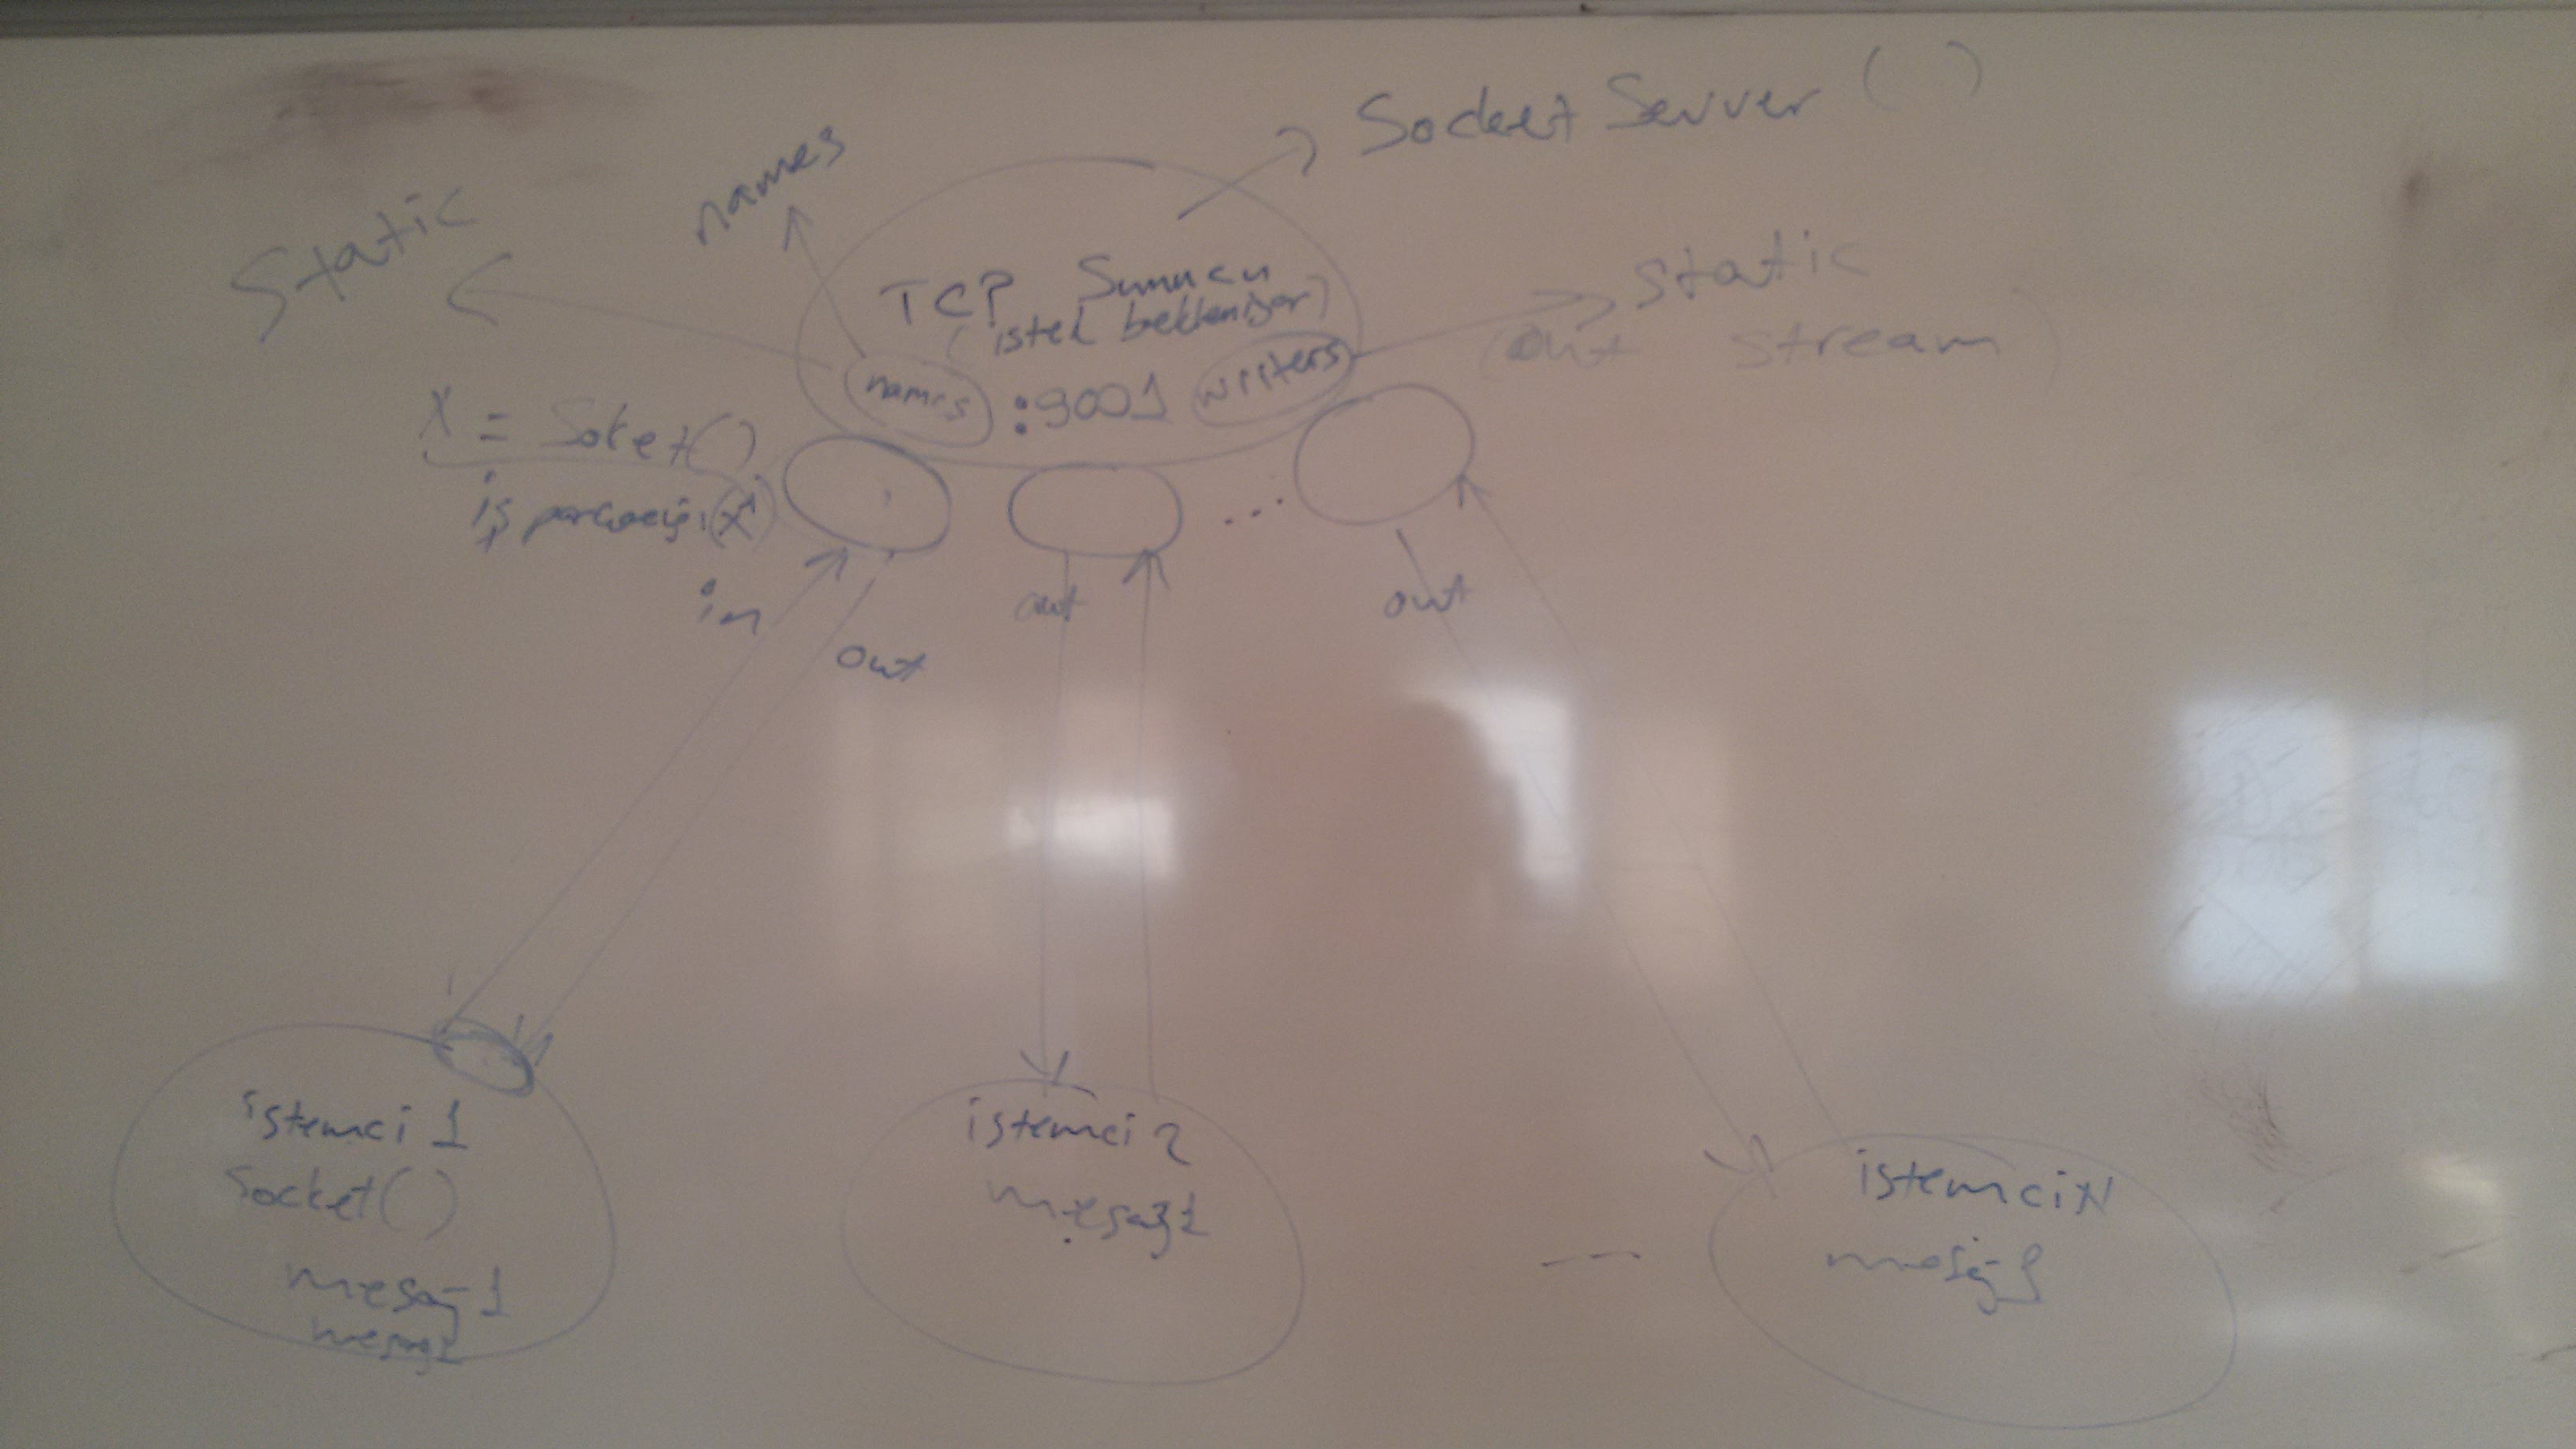 Socket Server ( )
names
static
TCP Sunucu
(istek bekleniyor)
static
(out stream)
names
:9001
writers
X = Soket()
iş parçacığı(x)
in
out
out
out
istemci 1
Socket()
mesaj-1
mesaj1
istemci 2
mesaj1
istemci N